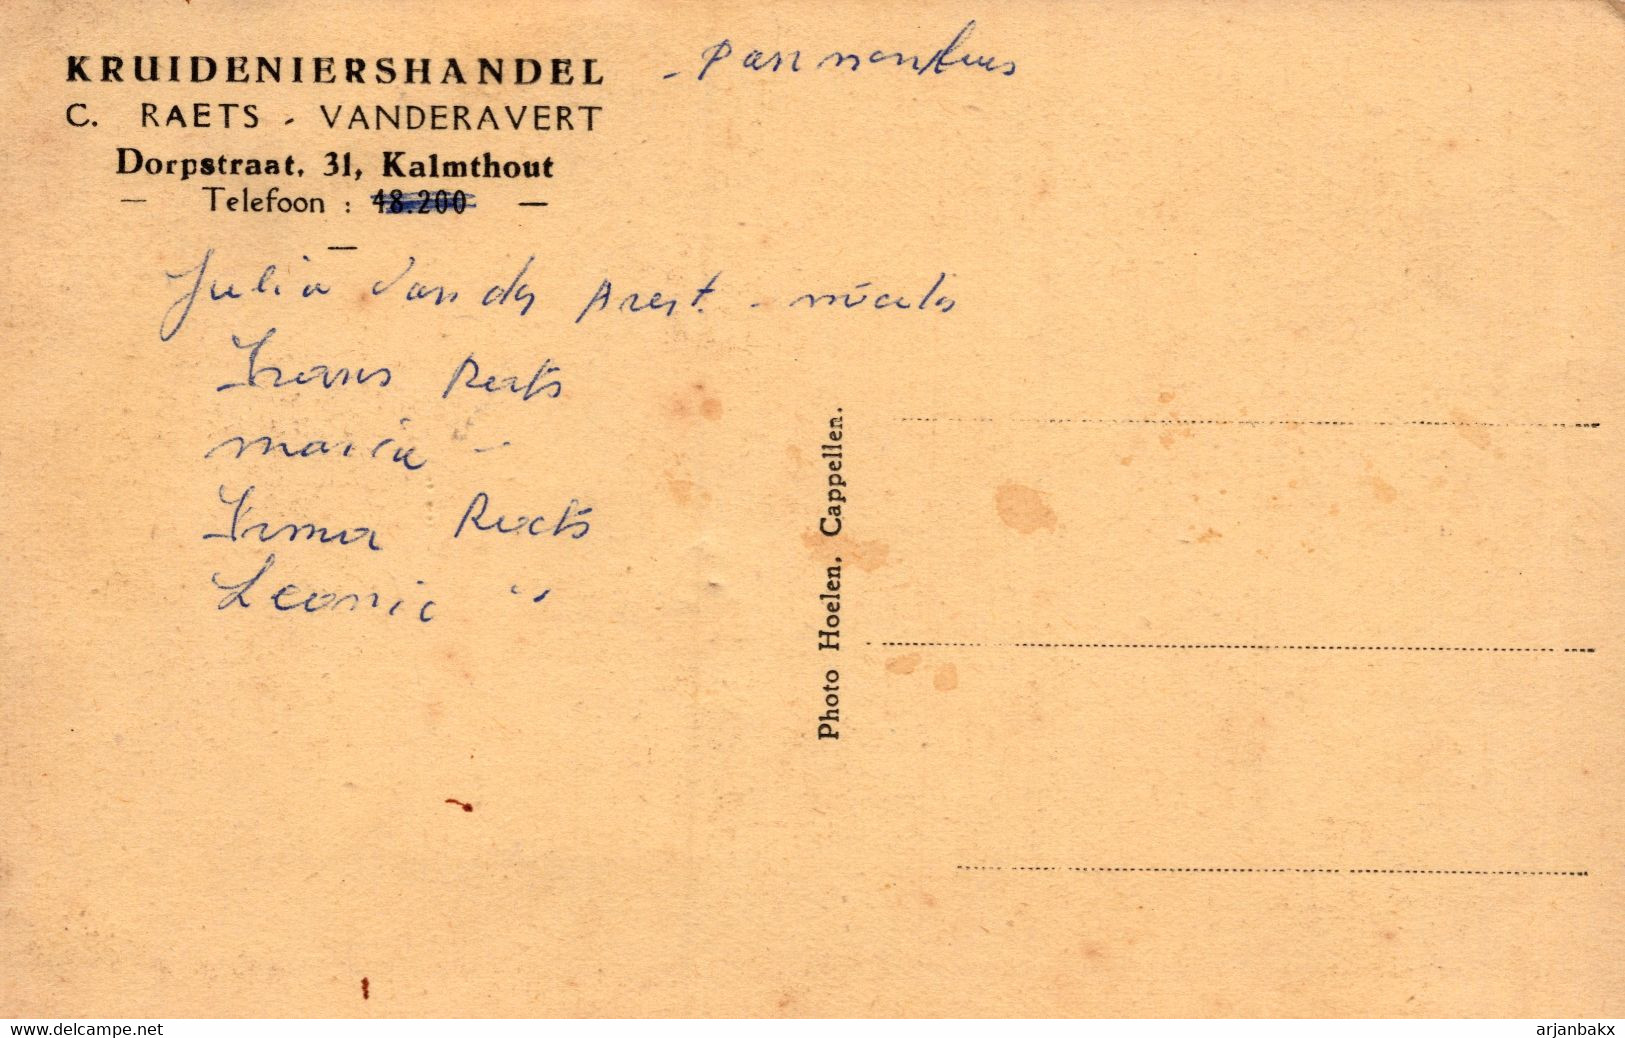 KRUIDENIERSHANDEL
C. RAETS - VANDERAVERT
Dorpstraat, 31, Kalmthout
— Telefoon : 48.200 —
Julia Van der Avert -
Frans Raets
maria -
Irma Raets
Leonie "
Photo Hoelen, Cappellen.
www.delcampe.net
arjanbakx